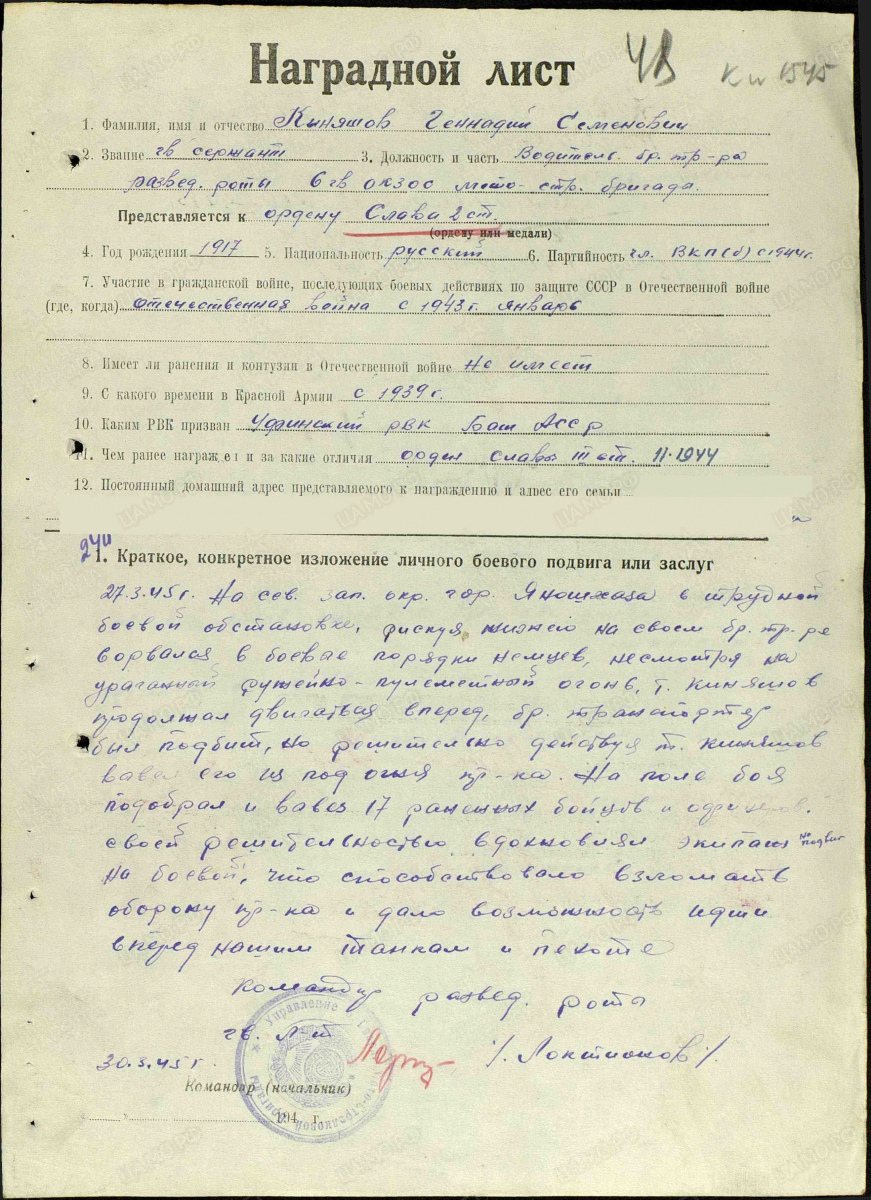 Наградной лист
48 Кн 1545
1. Фамилия, имя и отчество Кыняшов Геннадий Семенович
2. Звание гв сержант 3. Должность и часть Водитель. бр. тр-ра
развед. роты 6 гв мото-стр. бригада.
Представляется к ордену Слава 2 ст.
(ордену или медали)
4. Год рождения 1917 5. Национальность русский 6. Партийность чл. ВКП(б) с 1944г.
7. Участие в гражданской войне, последующих боевых действиях по защите СССР в Отечественной войне
(где, когда) отечественная война с 1943г. январь
8. Имеет ли ранения и контузии в Отечественной войне Не имеет
9. С какого времени в Красной Армии с 1939г.
10. Каким РВК призван Уфинский РВК Баш АССР
11. Чем ранее награжден и за какие отличия орден славы III ст. 11-1944
12. Постоянный домашний адрес представляемого к награждению и адрес его семьи
1. Краткое, конкретное изложение личного боевого подвига или заслуг
27.3.45г. На сев. зап. окр. гор. Яношхаза в трудной
боевой обстановке, рискуя жизнью на своем бр. тр. ре
ворвался в боевые порядки немцев, несмотря на
ураганный ружейно-пулеметный огонь, т. Киняшов
продолжал двигаться вперед, бр. транспортер
был подбит, но решительно действуя т. Киняшов
вывел его из под огня пр-ка. На поле боя
подобрал и вывез 17 раненных бойцов и офицеров.
своей решительностью вдохновлял экипаж на подвиг
на боевой, что способствовало взломать
оборону пр-ка и дало возможность идти
вперед нашим танкам и пехоте
Командир развед. роты
гв. л-т
30.3.45г. /. Локтионов /.
Командир (начальник)
194 г.
Управление